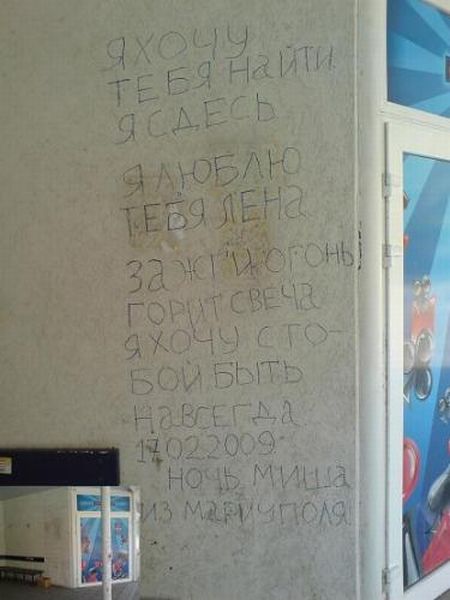 Я ХОЧУ
ТЕБЯ НАЙТИ
Я СДЕСЬ
Я ЛЮБЛЮ
ТЕБЯ ЛЕНА
ЗАЖГИ ОГОНЬ
ГОРИТ СВЕЧА
Я ХОЧУ С ТО-
БОЙ БЫТЬ
НАВСЕГДА
17.02.2009
НОЧЬ МИША
ИЗ МАРИУПОЛЯ